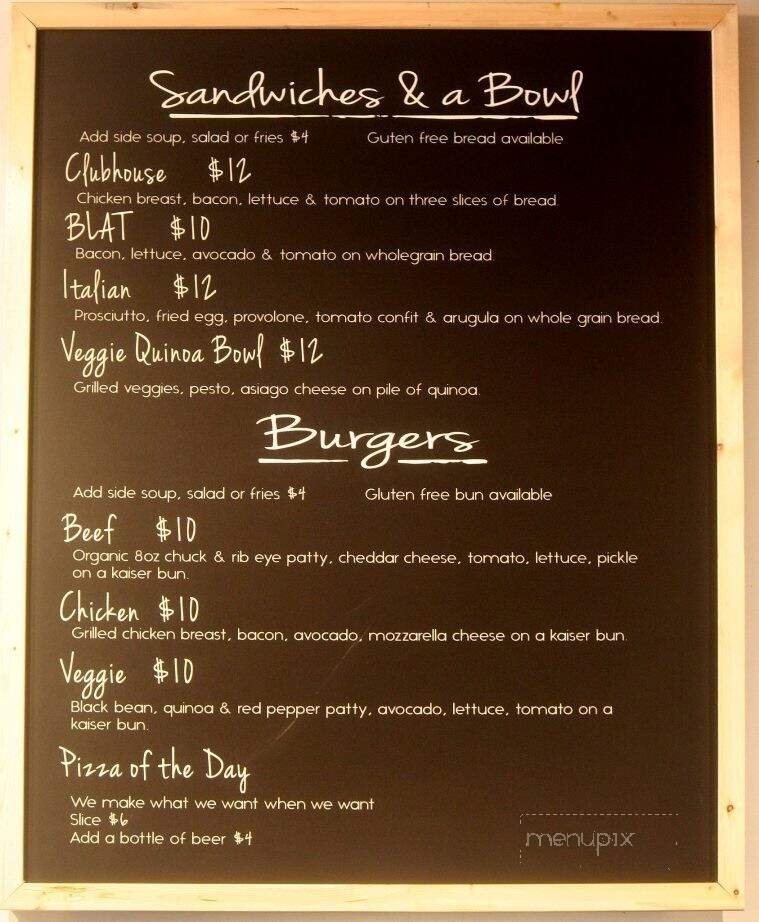 Sandwiches & a Bowl
Add side soup, salad or fries $4 Guten free bread available
Clubhouse $12
Chicken breast, bacon, lettuce & tomato on three slices of bread.
BLAT $10
Bacon, lettuce, avocado & tomato on wholegrain bread.
Italian $12
Prosciutto, fried egg, provolone, tomato confit & arugula on whole grain bread.
Veggie Quinoa Bowl $12
Grilled veggies, pesto, asiago cheese on pile of quinoa.
Burgers
Add side soup, salad or fries $4 Gluten free bun available
Beef $10
Organic 8oz chuck & rib eye patty, cheddar cheese, tomato, lettuce, pickle
on a kaiser bun.
Chicken $10
Grilled chicken breast, bacon, avocado, mozzarella cheese on a kaiser bun.
Veggie $10
Black bean, quinoa & red pepper patty, avocado, lettuce, tomato on a
kaiser bun.
Pizza of the Day
We make what we want when we want
Slice $6
Add a bottle of beer $4
menupix